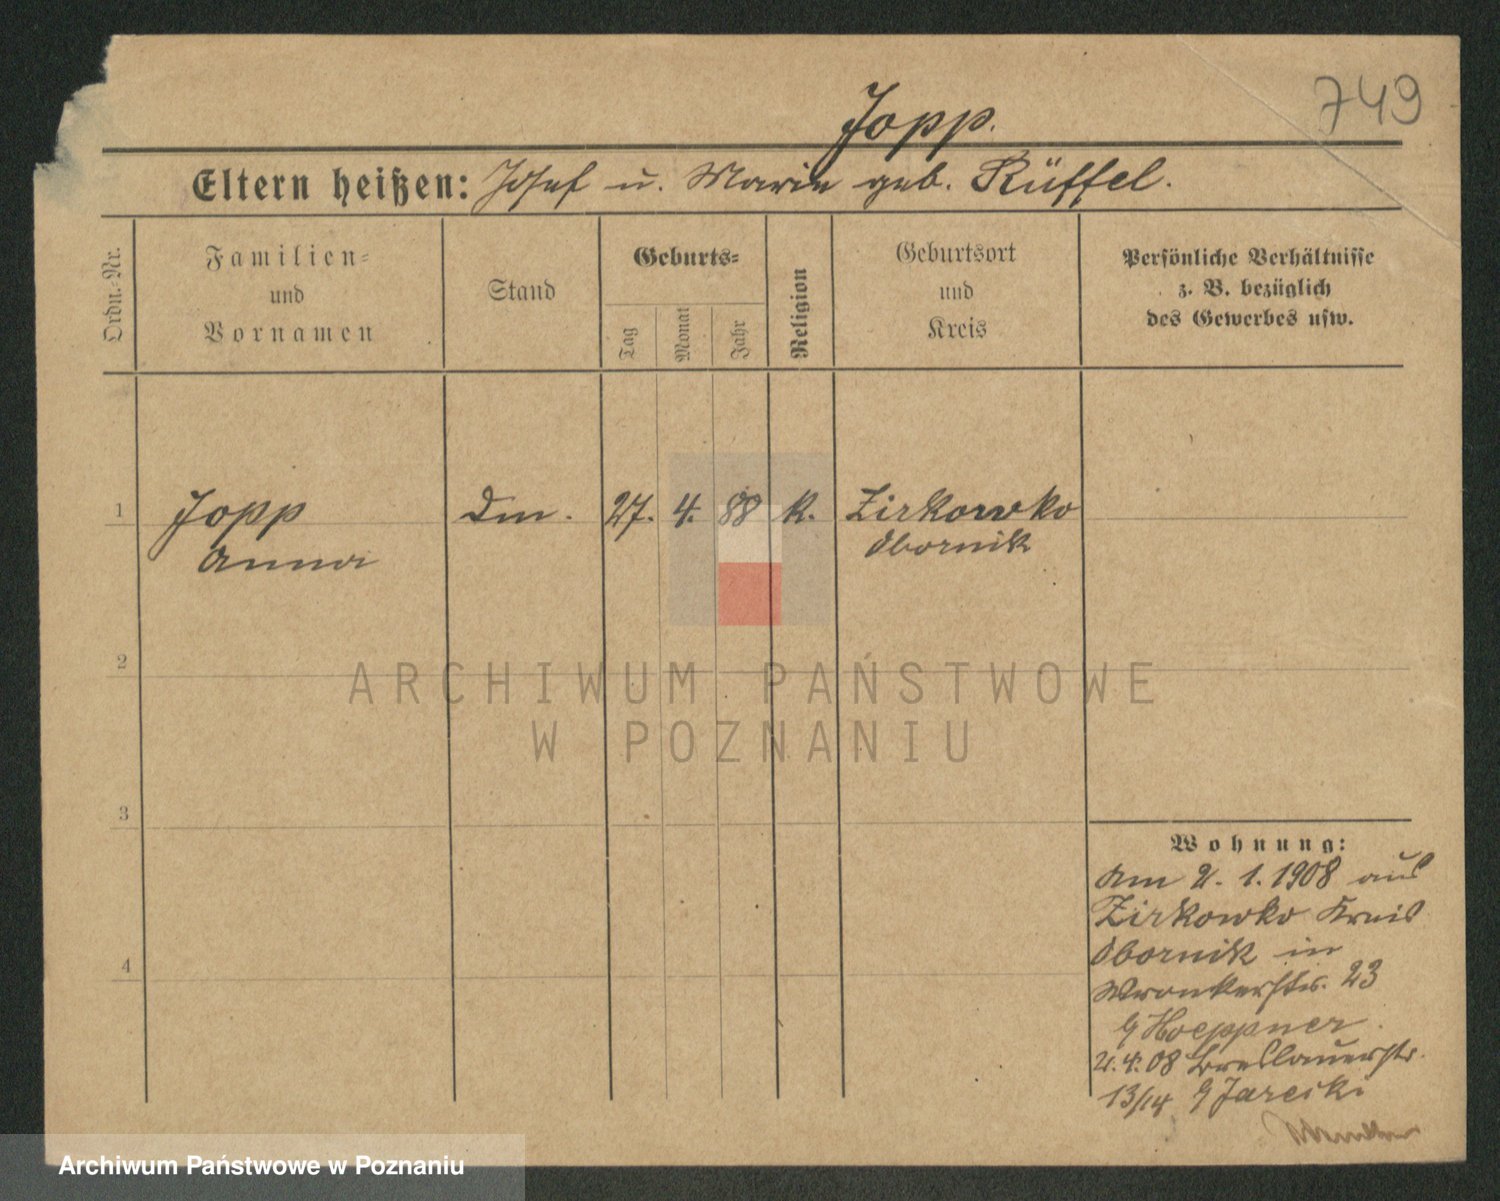 749
Jopp.
Eltern heißen: Josef u. Marie geb. Rüffel.
Ordn.-Nr.
Familien-
und
Vornamen
Stand
Geburts-
Tag
Monat
Jahr
Religion
Geburtsort
und
Kreis
Persönliche Verhältnisse
z. B. bezüglich
des Gewerbes usw.
1 Jopp Dm. 27. 4. 88 k. Zirkowko
Anna Obornik
2
3
4
ARCHIWUM PAŃSTWOWE
W POZNANIU
Wohnung:
Am 2. 1. 1908 aus
Zirkowko Kreis
Obornik in
Wronkerstr. 23
Hoeppner.
2.4.08 Breslauerstr.
13/14 Jarecki
Archiwum Państwowe w Poznaniu